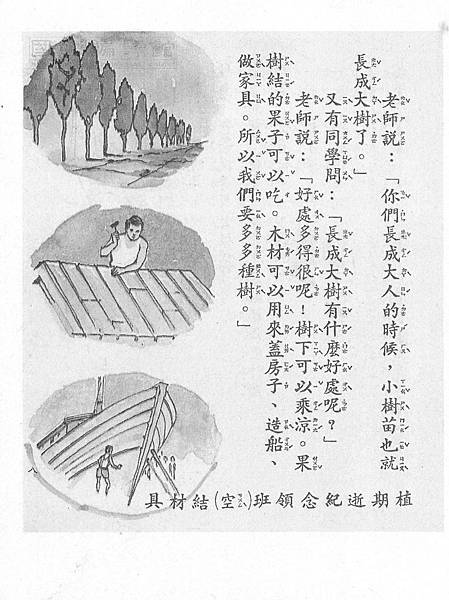 老師說：「你們長成大人的時候，小樹苗也就
長成大樹了。」
又有同學問：「長成大樹有什麼好處呢？」
老師說：「好處多得很呢！樹下可以乘涼。果
樹結的果子可以吃。木材可以用來蓋房子、造船、
做家具。所以我們要多多種樹。」
植期逝紀念領班(空)結材具